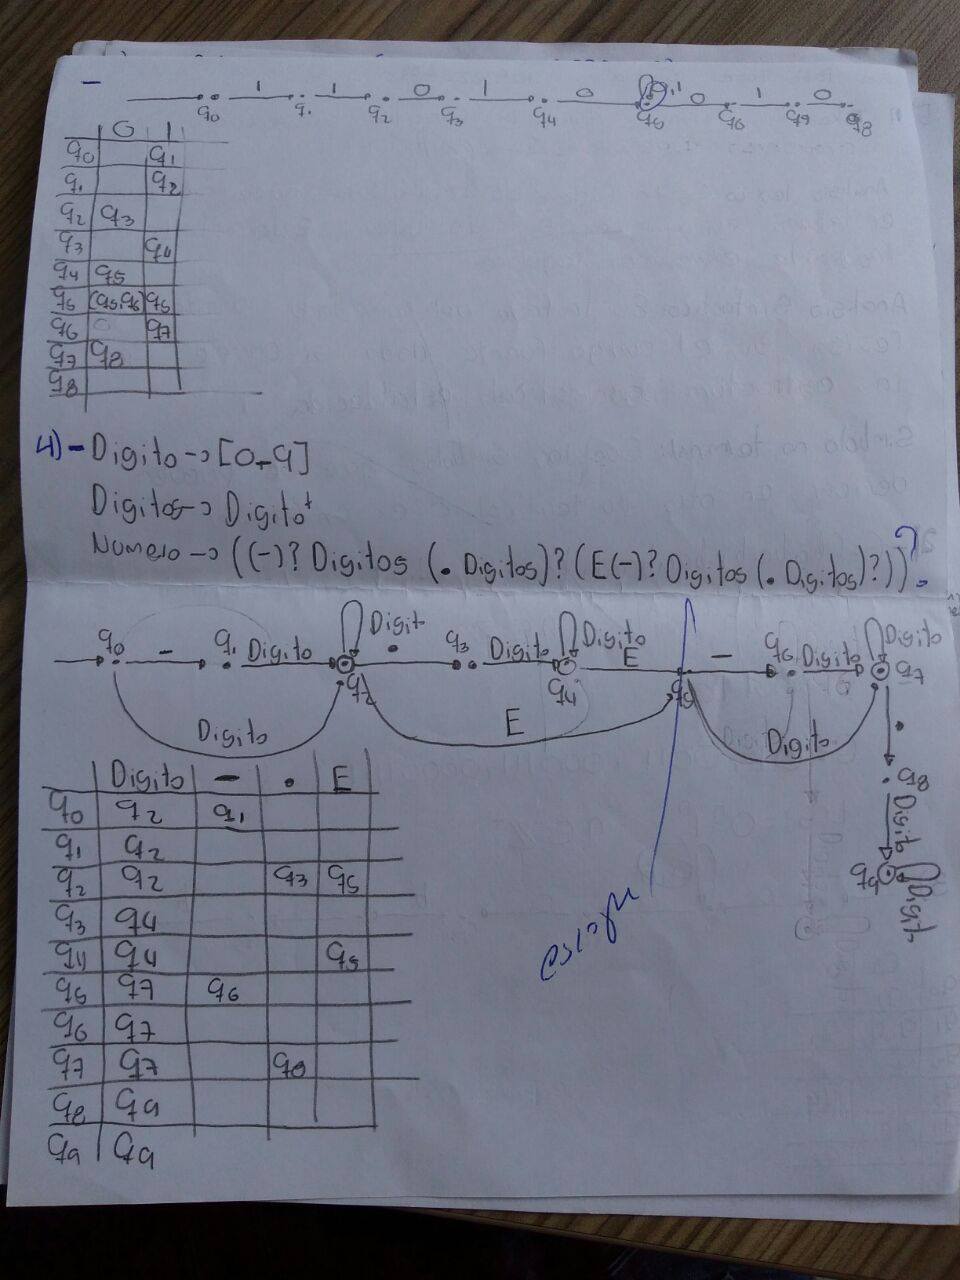 -
1 1 0 1 0 0,1 0 1 0
q0 q1 q2 q3 q4 q5 q6 q7 q8
0 1
q0 q1
q1 q2
q2 q3
q3 q4
q4 q5
q5 (q5,q6) q5
q6 q7
q7 q8
q8
4)- Digito → [0-9]
Digitos → Digito+
Numero → ((-)? Digitos (. Digitos)? (E(-)? Digitos (. Digitos)?))?.
q0 - q1 Digito q2 Digit . q3 Digito q4 Digito E q5 - q6 Digito q7 Digito
Digito E Digito
. q8
Digito
q9 Digito
Digito - . E
q0 q2 q1
q1 q2
q2 q2 q3 q5
q3 q4
q4 q4 q5
q5 q7 q6
q6 q7
q7 q7 q8
q8 q9
q9 q9